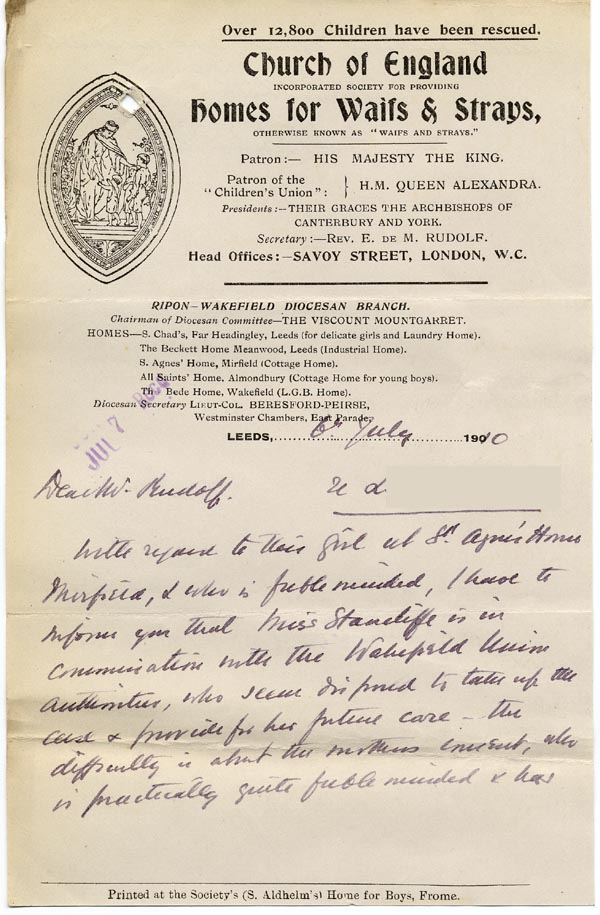 Over 12,800 Children have been rescued.
Church of England
INCORPORATED SOCIETY FOR PROVIDING
Homes for Waifs & Strays,
OTHERWISE KNOWN AS "WAIFS AND STRAYS."
Patron:— HIS MAJESTY THE KING.
Patron of the "Children's Union": } H.M. QUEEN ALEXANDRA.
Presidents:—THEIR GRACES THE ARCHBISHOPS OF
CANTERBURY AND YORK.
Secretary:—REV. E. DE M. RUDOLF.
Head Offices:—SAVOY STREET, LONDON, W.C.
RIPON–WAKEFIELD DIOCESAN BRANCH.
Chairman of Diocesan Committee—THE VISCOUNT MOUNTGARRET.
HOMES—S. Chad's, Far Headingley, Leeds (for delicate girls and Laundry Home).
The Beckett Home Meanwood, Leeds (Industrial Home).
S. Agnes' Home, Mirfield (Cottage Home).
All Saints' Home, Almondbury (Cottage Home for young boys).
The Bede Home, Wakefield (L.G.B. Home).
Diocesan Secretary LIEUT-COL. BERESFORD-PEIRSE,
Westminster Chambers, East Parade,
JUL 7
LEEDS, 6th July 1910
Dear Mr. Rudolf.
With regard to this girl at St. Agnes Home
Mirfield, & who is feeble minded, I have to
inform you that Miss Stancliffe is in
communication with the Wakefield Union
Authorities, who seem disposed to take up the
case & provide for her future care – the
difficulty is about the mothers consent, who
is practically quite feeble minded & has
Printed at the Society's (S. Aldhelm's) Home for Boys, Frome.